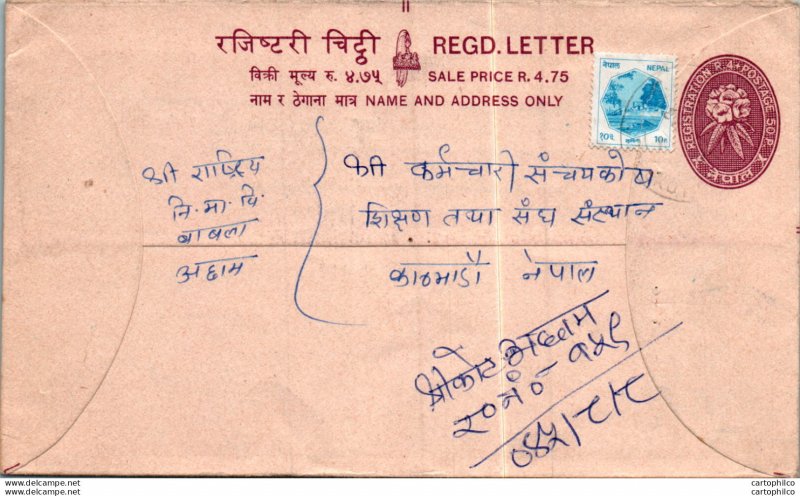 रजिष्टरी चिट्ठी REGD. LETTER
विक्री मूल्य रु. ४.७५ SALE PRICE R. 4.75
नाम र ठेगाना मात्र NAME AND ADDRESS ONLY
नेपाल NEPAL
१०पै. 10p
REGISTRATION R. 4 + POSTAGE 50 P.
नेपाल
श्री राष्ट्रिय
नि. मा. वि.
बाबला
अछाम
श्री कर्मचारी संचयकोष
शिक्षण तथा संघ संस्थान
काठमाडौ नेपाल
श्रीकोट अछाम
र० नं० १५९
०४५।८।८
www.cartophilco.com
cartophilco
cartophilco